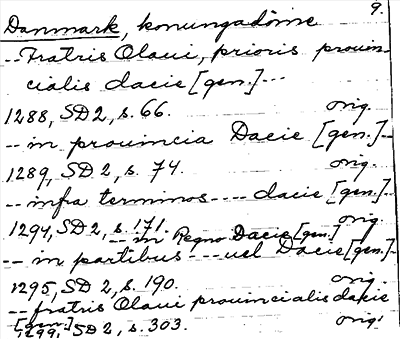 Danmark, konungadöme 9.
-- Fratris Olaui, prioris prouin-
cialis dacie [gen.] ---
1288, SD 2, s. 66. orig.
-- in prouincia Dacie [gen.] --
1289, SD 2, s. 74. orig.
-- infra terminos ---- dacie [gen.] --
1294, SD 2, s. 171. orig.
-- in Regno Dacie [gen.]
-- in partibus --- uel Dacie [gen.] --
1295, SD 2, s. 190. orig.
-- fratris Olaui prouincialis dacie
[gen.]
1299, SD 2, s. 303. orig.